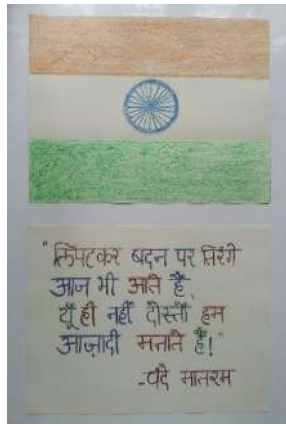 "लिपटकर बदन पर तिरंगे
आज भी आते हैं,
यूँ ही नहीं दोस्तों हम
आज़ादी मनाते हैं!"
-वंदे मातरम